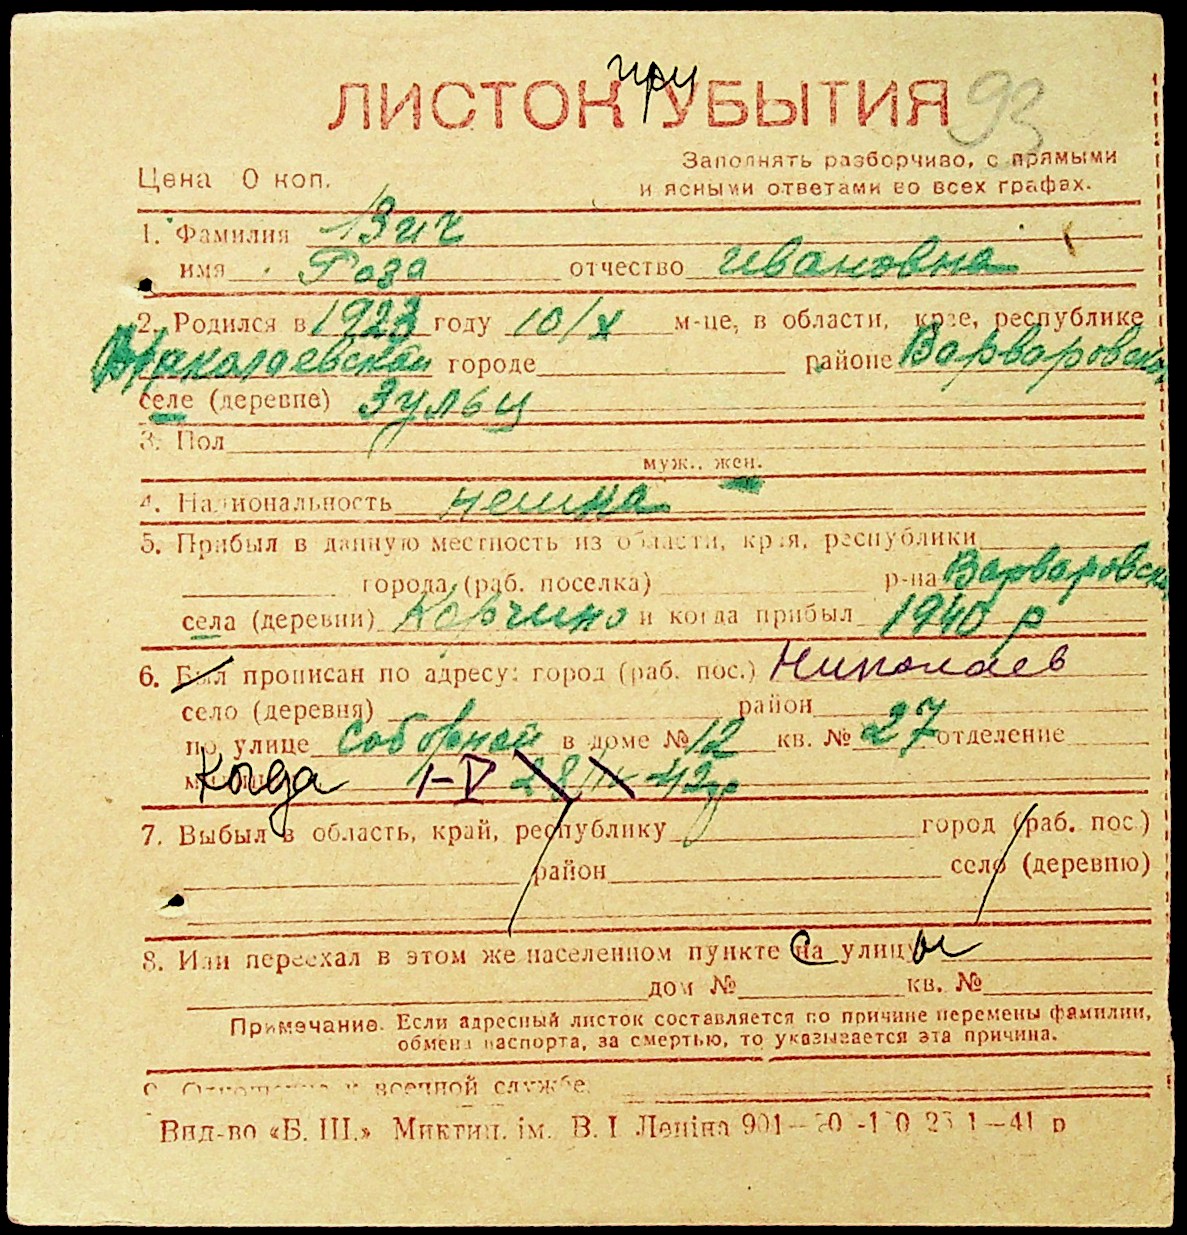 ЛИСТОК при УБЫТИЯ 93
Цена 0 коп.
Заполнять разборчиво, с прямыми
и ясными ответами во всех графах.
1. Фамилия Зич
имя Роза отчество Ивановна
2. Родился в 1923 году 10/X м-це, в области, крае, республике
Николаевской городе районе Варваровском
селе (деревне) Зульц
3. Пол
муж., жен.
4. Национальность немка
5. Прибыл в данную местность из области, края, республики
города (раб. поселка) р-на Варваровск
села (деревни) Корчино и когда прибыл 1940 р
6. Был прописан по адресу: город (раб. пос.) Николаев
село (деревня) район
по улице Соборной в доме № 12 кв. № 27 отделение
Когда 1-V 28 42
7. Выбыл в область, край, республику город (раб. пос.)
район село (деревню)
8. Или переехал в этом же населенном пункте с на улицы
дом № кв. №
Примечание. Если адресный листок составляется по причине перемены фамилии,
обмена паспорта, за смертью, то указывается эта причина.
9. Отношение к военной службе
Вид-во «Б. Ш.» Миктип. ім. В. І Леніна 901 41 р